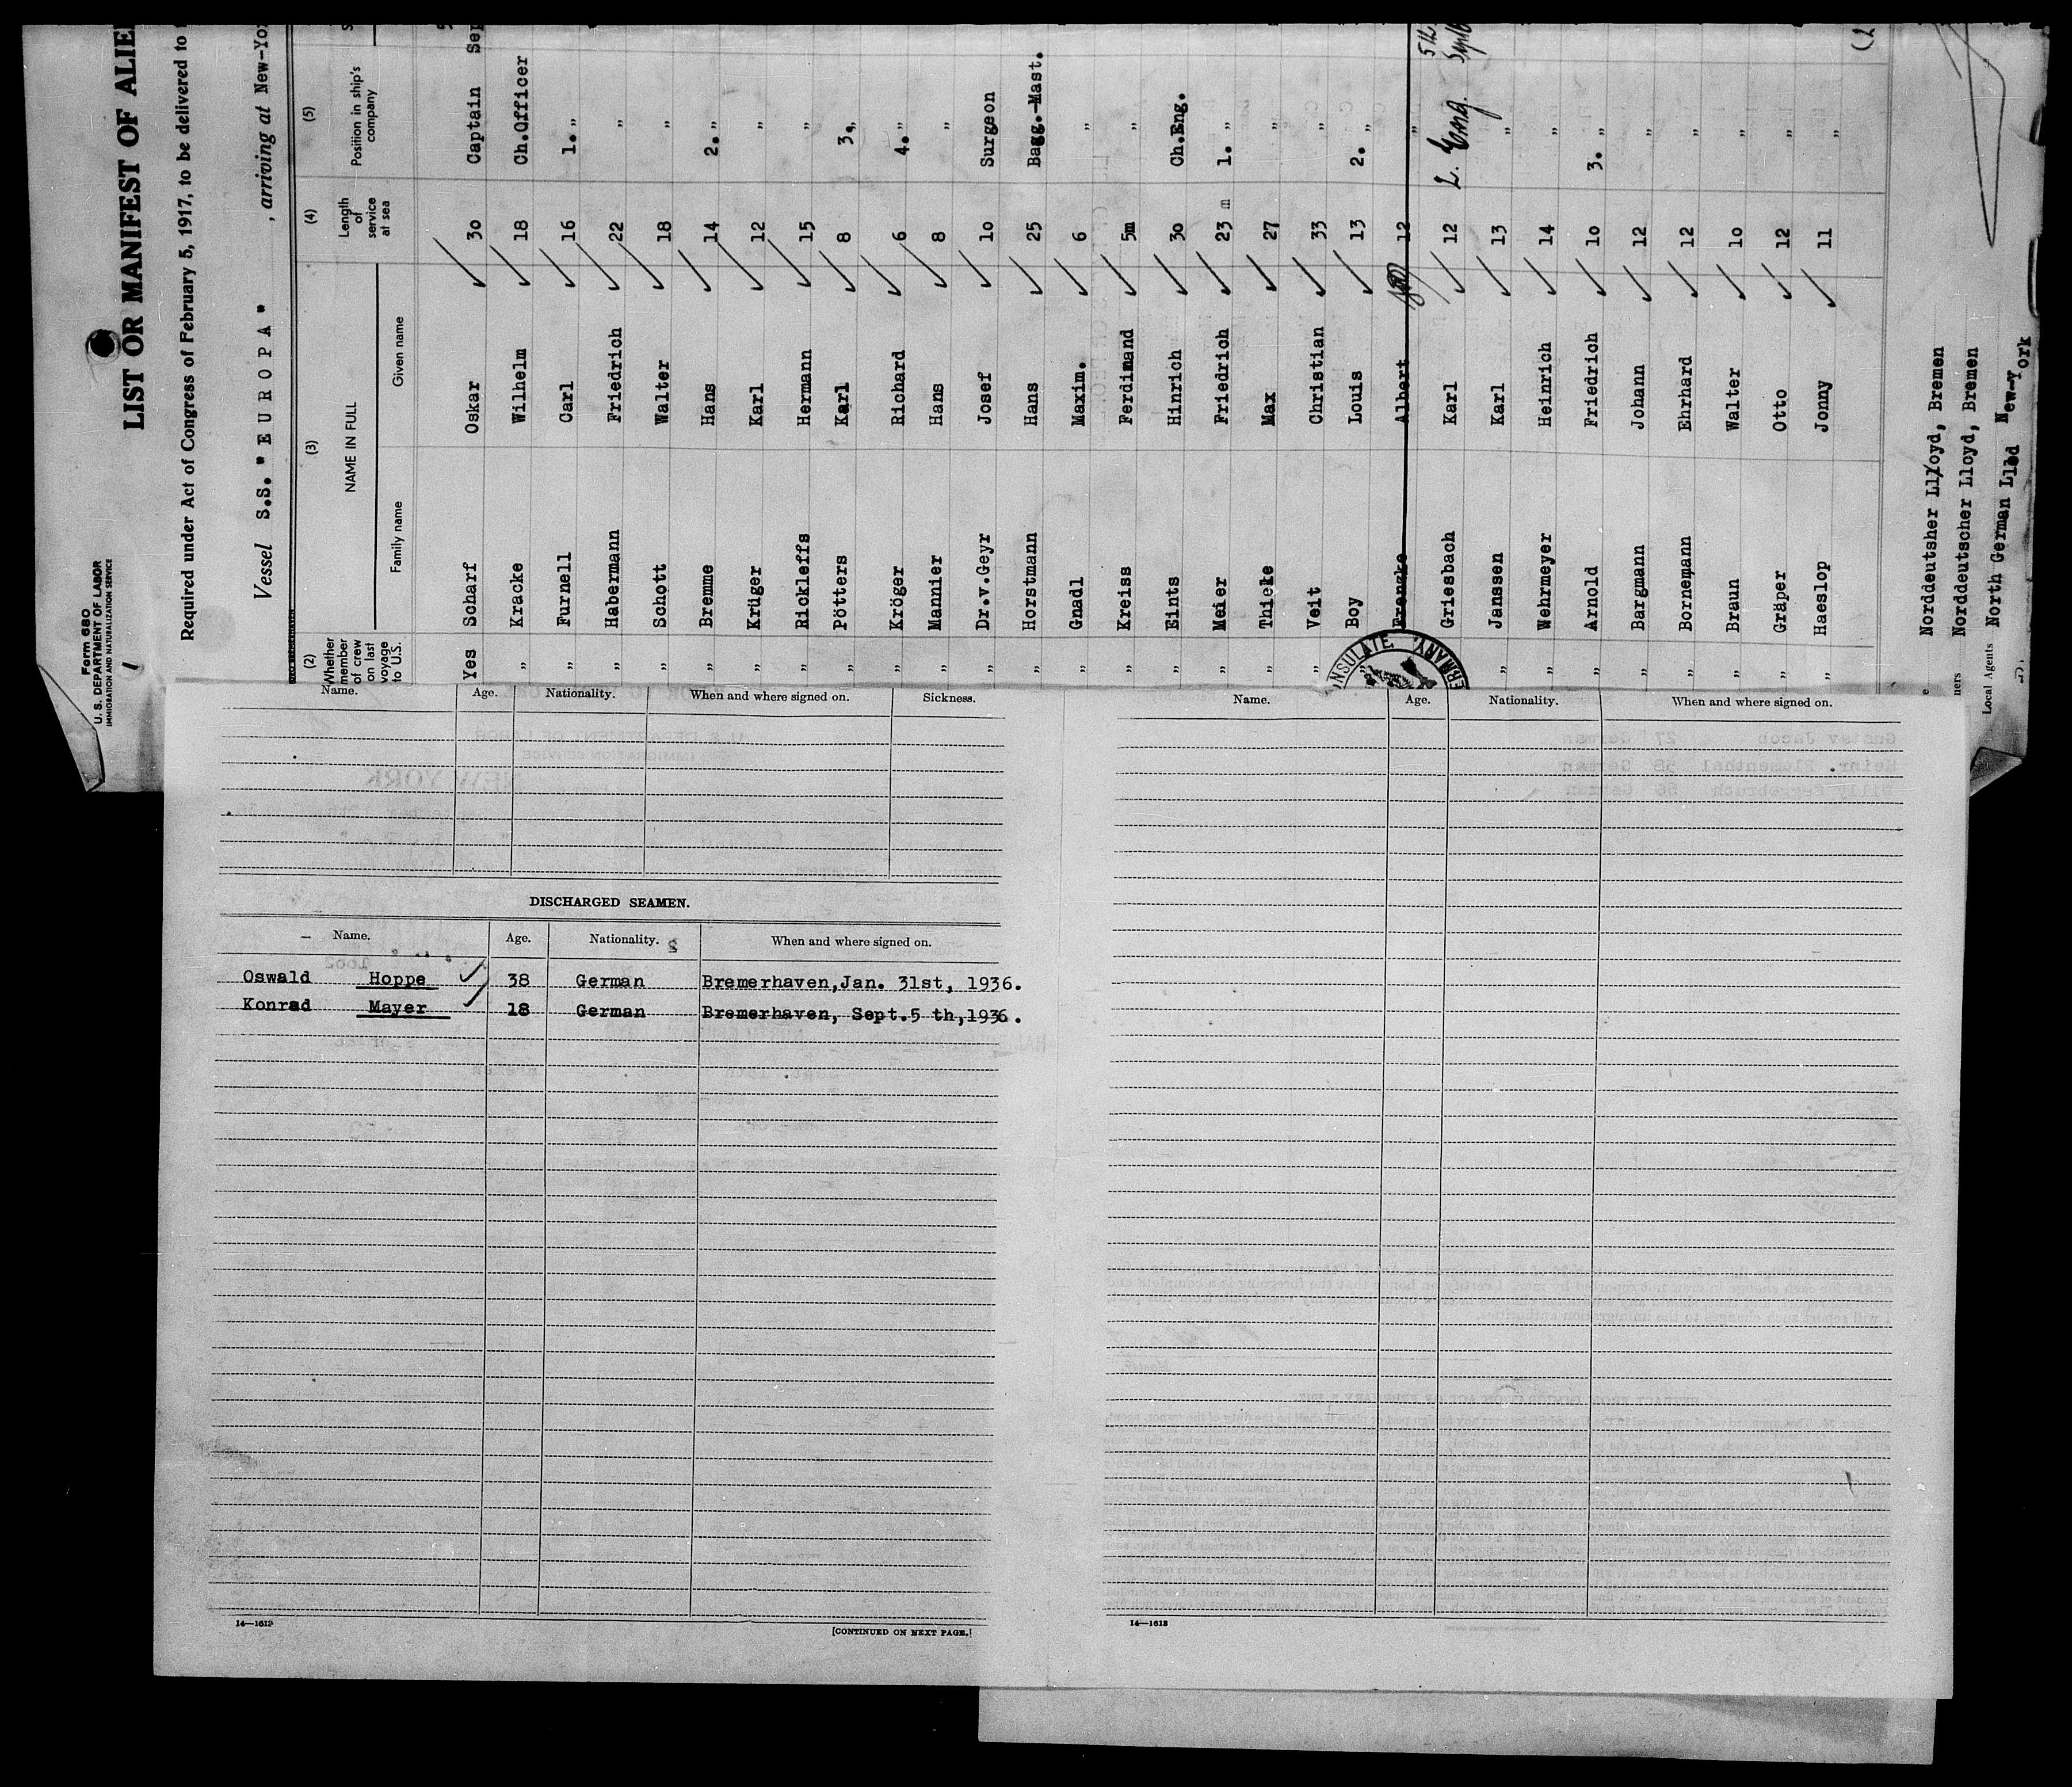 Form 680
U. S. DEPARTMENT OF LABOR
IMMIGRATION AND NATURALIZATION SERVICE
LIST OR MANIFEST OF ALIE
Required under Act of Congress of February 5, 1917, to be delivered to
Vessel S.S. "EUROPA" , arriving at New-Yo
(2) (3) (4) (5)
Whether member of crew on last voyage to U.S. NAME IN FULL Length of service at sea Position in ship's company
Family name Given name
Yes Scharf Oskar 30 Captain Sep
" Kracke Wilhelm 18 Ch.Officer
" Furnell Carl 16 1. "
" Habermann Friedrich 22 "
" Schott Walter 18 "
" Bremme Hans 14 2. "
" Krüger Karl 12 "
" Rickleffs Hermann 15 "
" Pötters Karl 8 3. "
" Kröger Richard 6 4. "
" Mannier Hans 8 "
" Dr.v.Geyr Josef 10 Surgeon
" Horstmann Hans 25 Bagg.-Mast.
" Gnadl Maxim. 6 "
" Kreiss Ferdimand 5m "
" Eints Hinrich 30 Ch.Eng.
" Meier Friedrich 23 m 1. "
" Thiele Max 27 "
" Veit Christian 33 "
" Boy Louis 13 2. "
Albert 12 "
Griesbach Karl 12 2. Eng.
" Janssen Karl 13 "
" Wehrmeyer Heinrich 14 "
" Arnold Friedrich 10 3. "
" Bargmann Johann 12 "
" Bornemann Ehrhard 12 "
" Braun Walter 10 "
" Gräper Otto 12 "
" Haeslop Jonny 11 "
NSULATE
Norddeutsher Lloyd, Bremen
ners Norddeutscher Lloyd, Bremen
Local Agents North German Lled New-York
Name. Age. Nationality. When and where signed on. Sickness.
DISCHARGED SEAMEN.
Name. Age. Nationality. When and where signed on.
Oswald Hoppe 38 German Bremerhaven,Jan. 31st, 1936.
Konrad Mayer 18 German Bremerhaven, Sept.5 th,1936.
14—1612
[CONTINUED ON NEXT PAGE.]
Name. Age. Nationality. When and where signed on.
14—1612